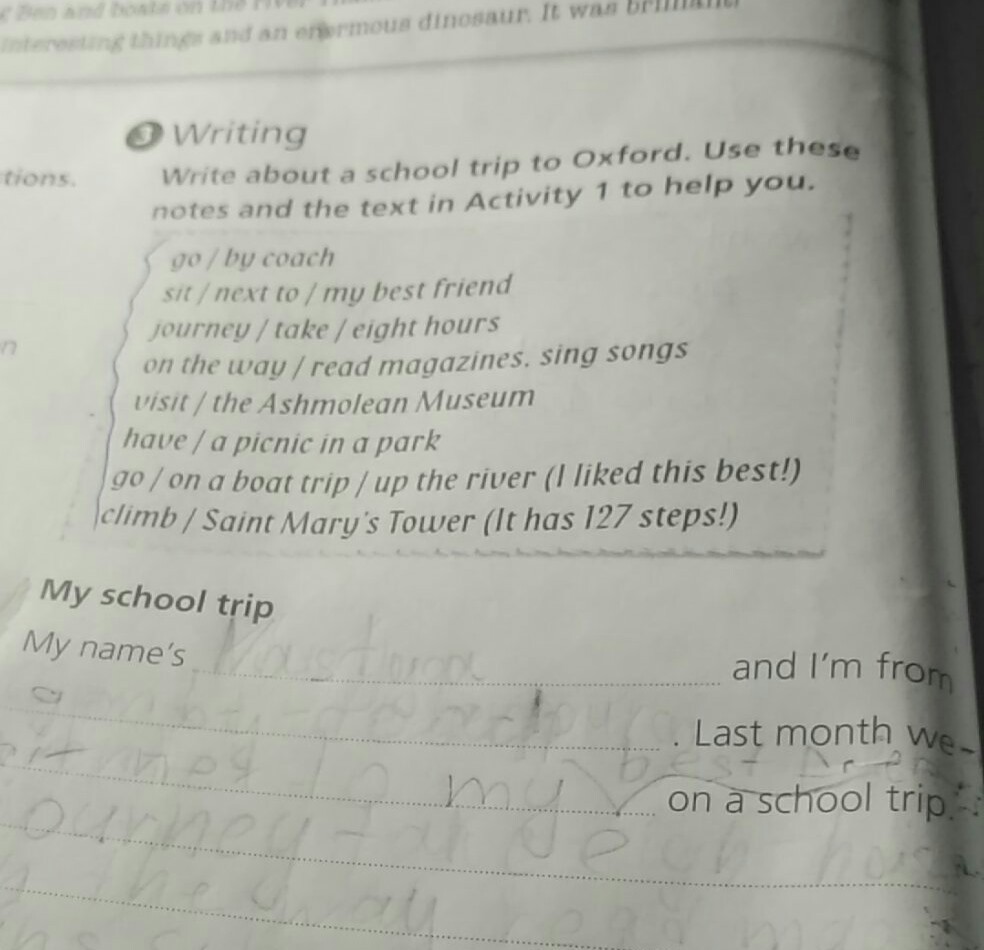 Ben and boats on the river
interesting things and an enormous dinosaur. It was brilliant!
tions.
3 Writing
Write about a school trip to Oxford. Use these
notes and the text in Activity 1 to help you.
go / by coach
sit / next to / my best friend
journey / take / eight hours
on the way / read magazines, sing songs
visit / the Ashmolean Museum
have / a picnic in a park
go / on a boat trip / up the river (I liked this best!)
climb / Saint Mary's Tower (It has 127 steps!)
My school trip
My name's and I'm from
. Last month we
best
my on a school trip.
the way read